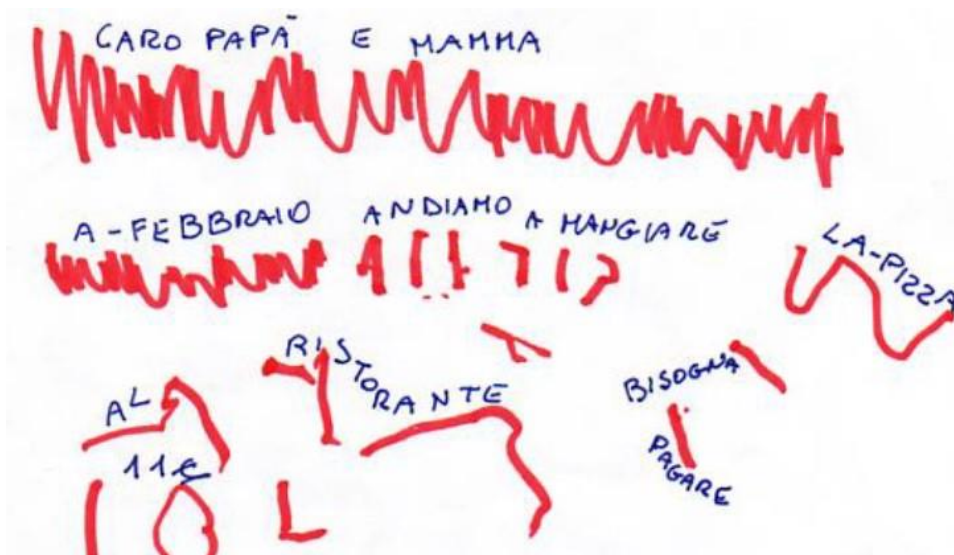 CARO PAPÀ E MAMMA
A-FEBBRAIO ANDIAMO A MANGIARE LA-PIZZA
AL RISTORANTE BISOGNA PAGARE
11€